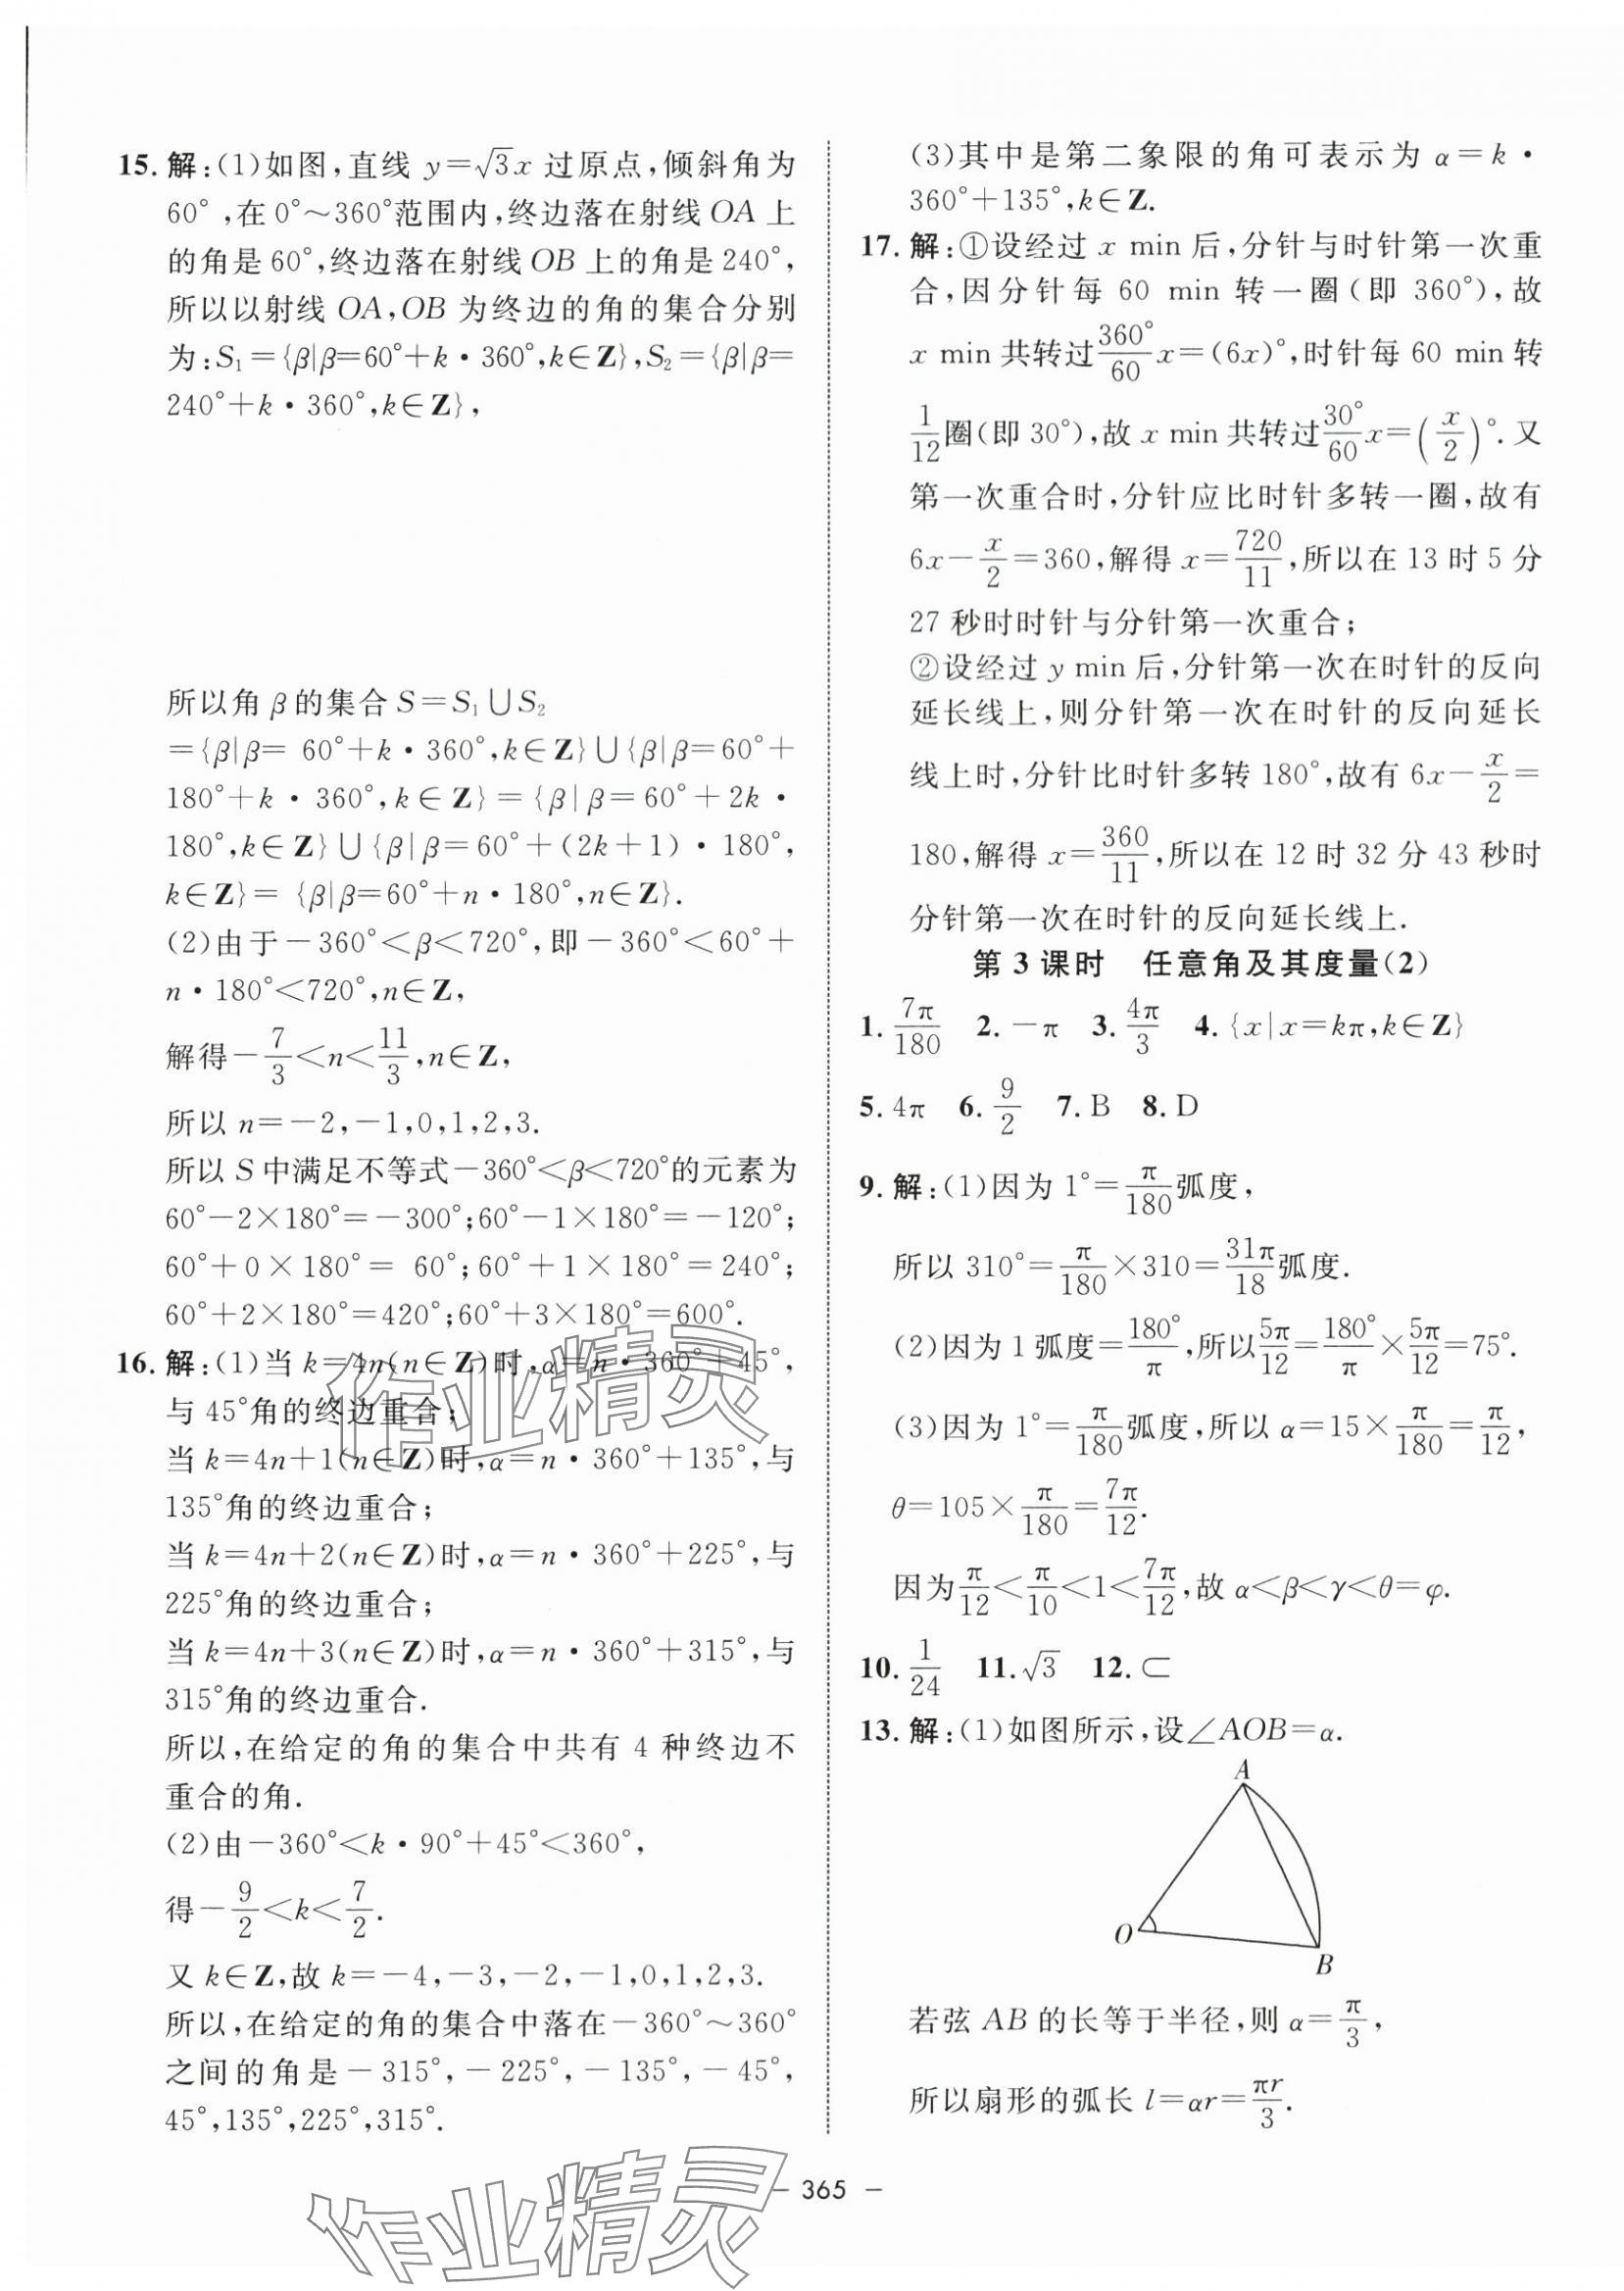 15. 解:(1)如图,直线 y=√3x 过原点,倾斜角为
60°,在 0°~360°范围内,终边落在射线 OA 上
的角是 60°,终边落在射线 OB 上的角是 240°,
所以以射线 OA,OB 为终边的角的集合分别
为:S₁={β|β=60°+k·360°,k∈Z},S₂={β|β=
240°+k·360°,k∈Z},
所以角 β 的集合 S=S₁∪S₂
={β|β= 60°+k·360°,k∈Z}∪{β|β=60°+
180°+k·360°,k∈Z}={β|β=60°+2k·
180°,k∈Z}∪{β|β=60°+(2k+1)·180°,
k∈Z}= {β|β=60°+n·180°,n∈Z}.
(2)由于-360°<β<720°,即-360°<60°+
n·180°<720°,n∈Z,
解得-7/3<n<11/3,n∈Z,
所以 n=-2,-1,0,1,2,3.
所以 S 中满足不等式-360°<β<720°的元素为
60°-2×180°=-300°;60°-1×180°=-120°;
60°+0×180°= 60°;60°+1×180°=240°;
60°+2×180°=420°;60°+3×180°=600°.
16. 解:(1)当 k=4n(n∈Z)时,α=n·360°+45°,
与 45°角的终边重合;
当 k=4n+1(n∈Z)时,α=n·360°+135°,与
135°角的终边重合;
当 k=4n+2(n∈Z)时,α=n·360°+225°,与
225°角的终边重合;
当 k=4n+3(n∈Z)时,α=n·360°+315°,与
315°角的终边重合.
所以,在给定的角的集合中共有 4 种终边不
重合的角.
(2)由-360°<k·90°+45°<360°,
得-9/2<k<7/2.
又 k∈Z,故 k=-4,-3,-2,-1,0,1,2,3.
所以,在给定的角的集合中落在-360°~360°
之间的角是-315°,-225°,-135°,-45°,
45°,135°,225°,315°.
(3)其中是第二象限的角可表示为 α=k·
360°+135°,k∈Z.
17. 解:①设经过 x min 后,分针与时针第一次重
合,因分针每 60 min 转一圈(即 360°),故
x min 共转过360°/60 x=(6x)°,时针每 60 min 转
1/12圈(即 30°),故 x min 共转过30°/60 x=(x/2)°.又
第一次重合时,分针应比时针多转一圈,故有
6x-x/2=360,解得 x=720/11,所以在 13 时 5 分
27 秒时时针与分针第一次重合;
②设经过 y min 后,分针第一次在时针的反向
延长线上,则分针第一次在时针的反向延长
线上时,分针比时针多转 180°,故有 6x-x/2=
180,解得 x=360/11,所以在 12 时 32 分 43 秒时
分针第一次在时针的反向延长线上.
第 3 课时 任意角及其度量(2)
1. 7π/180 2. -π 3. 4π/3 4. {x|x=kπ,k∈Z}
5. 4π 6. 9/2 7. B 8. D
9. 解:(1)因为 1°=π/180弧度,
所以 310°=π/180×310=31π/18弧度.
(2)因为 1 弧度=180°/π,所以5π/12=180°/π×5π/12=75°.
(3)因为 1°=π/180弧度,所以 α=15×π/180=π/12,
θ=105×π/180=7π/12.
因为π/12<π/10<1<7π/12,故 α<β<γ<θ=φ.
10. 1/24 11. √3 12. ⊂
13. 解:(1)如图所示,设∠AOB=α.
A
O
B
若弦 AB 的长等于半径,则 α=π/3,
所以扇形的弧长 l=αr=πr/3.
- 365 -
作业精灵
作业精灵